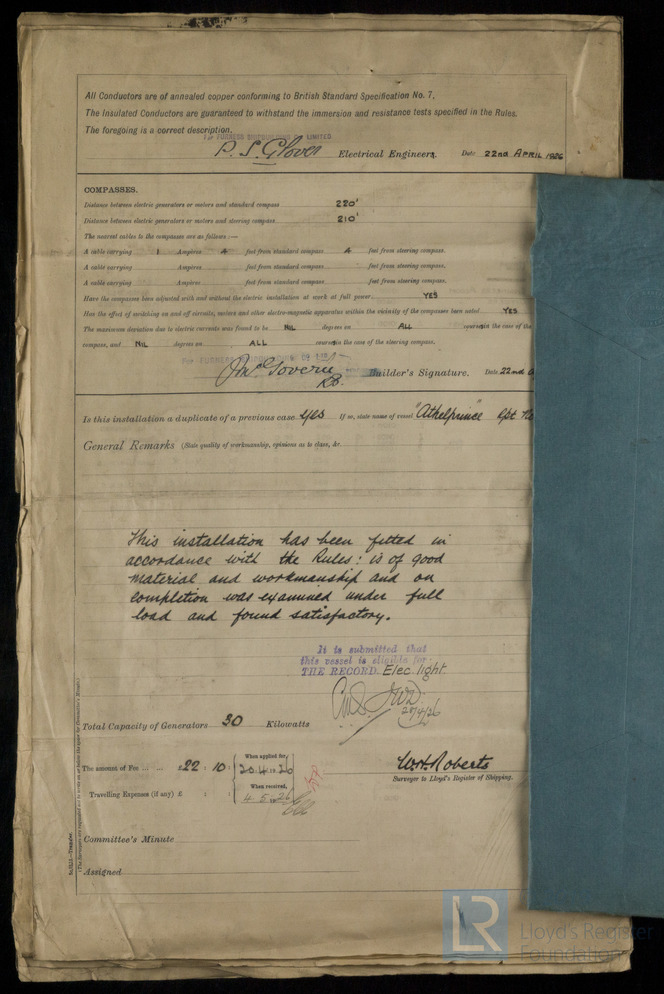 All Conductors are of annealed copper conforming to British Standard Specification No. 7.
The Insulated Conductors are guaranteed to withstand the immersion and resistance tests specified in the Rules.
The foregoing is a correct description.
For FURNESS SHIPBUILDING CO. LIMITED
P. S. Glover Electrical Engineers. Date 22nd APRIL 1926
COMPASSES.
Distance between electric generators or motors and standard compass 220'
Distance between electric generators or motors and steering compass 210'
The nearest cables to the compasses are as follows :—
A cable carrying 1 Ampères 4 feet from standard compass 4 feet from steering compass.
A cable carrying Ampères feet from standard compass feet from steering compass.
A cable carrying Ampères feet from standard compass feet from steering compass.
Have the compasses been adjusted with and without the electric installation at work at full power YES
Has the effect of switching on and off circuits, motors and other electro-magnetic apparatus within the vicinity of the compasses been noted YES
The maximum deviation due to electric currents was found to be NIL degrees on ALL courses in the case of the
compass, and NIL degrees on ALL courses in the case of the steering compass.
Builder's Signature. Date 22nd
Is this installation a duplicate of a previous case yes If so, state name of vessel "Athelprince" Rpt No
General Remarks (State quality of workmanship, opinions as to class, &c.
This installation has been fitted in
accordance with the Rules: is of good
material and workmanship and on
completion was examined under full
load and found satisfactory.
It is submitted that
this vessel is eligible for
THE RECORD. Elec. light.
28/4/26
Total Capacity of Generators 30 Kilowatts
The amount of Fee ... ... £22 : 10 : When applied for, 20.4.1926
W.H. Roberts
Surveyor to Lloyd's Register of Shipping.
Travelling Expenses (if any) £ : : When received, 4.5.1926
Committee's Minute
Assigned
LR
Lloyd's Register
Foundation